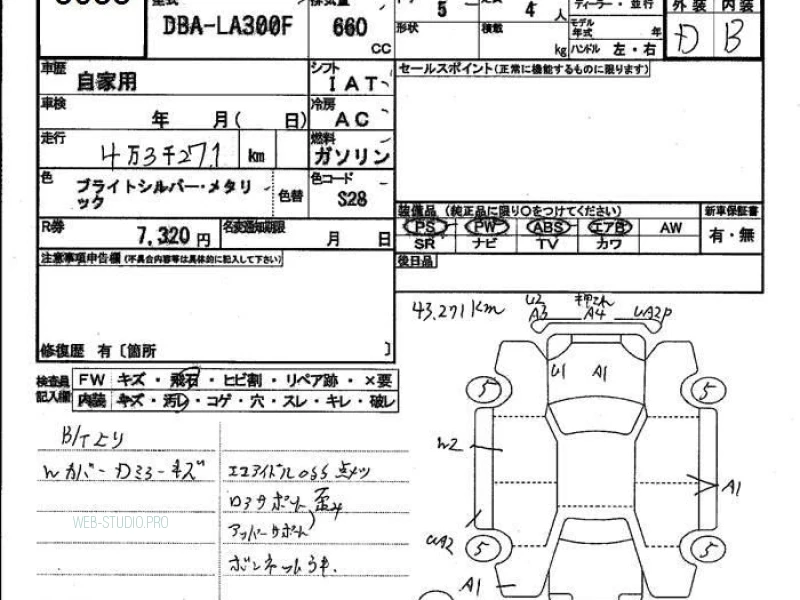 DBA-LA300F
660
CC
5
4 人
ディーラー・並行
外装 内装
形状
積載
kg
モデル年式 年
ハンドル 左・右
D B
車歴
自家用
シフト
IAT
セールスポイント(正常に機能するものに限ります)
車検
年 月( 日)
冷房
AC
走行
4万3千271 km
燃料
ガソリン
色
ブライトシルバー・メタリック
色替
色コード
S28
装備品 (純正品に限り○をつけてください)
新車保証書
PS PW ABS エアB AW
SR ナビ TV カワ
有・無
R券
7,320 円
名変通知期限
月 日
後日品
注意事項申告欄 (不具合内容等は具体的に記入して下さい)
修復歴 有 〔箇所 〕
43,271km
U2
A3
押され
A4
UA2P
U1 A1
5 5
W2
A1
UA2
5 5
A1
検査員記入欄
FW キズ・飛石・ヒビ割・リペア跡・×要
内装 キズ・汚レ・コゲ・穴・スレ・キレ・破レ
B/Tより
Wカバー・Dミラーキズ
エコアイドルOSS点メツ
ロアサポート歪み
アッパーサポート
ボンネットうき.
WEB-STUDIO.PRO